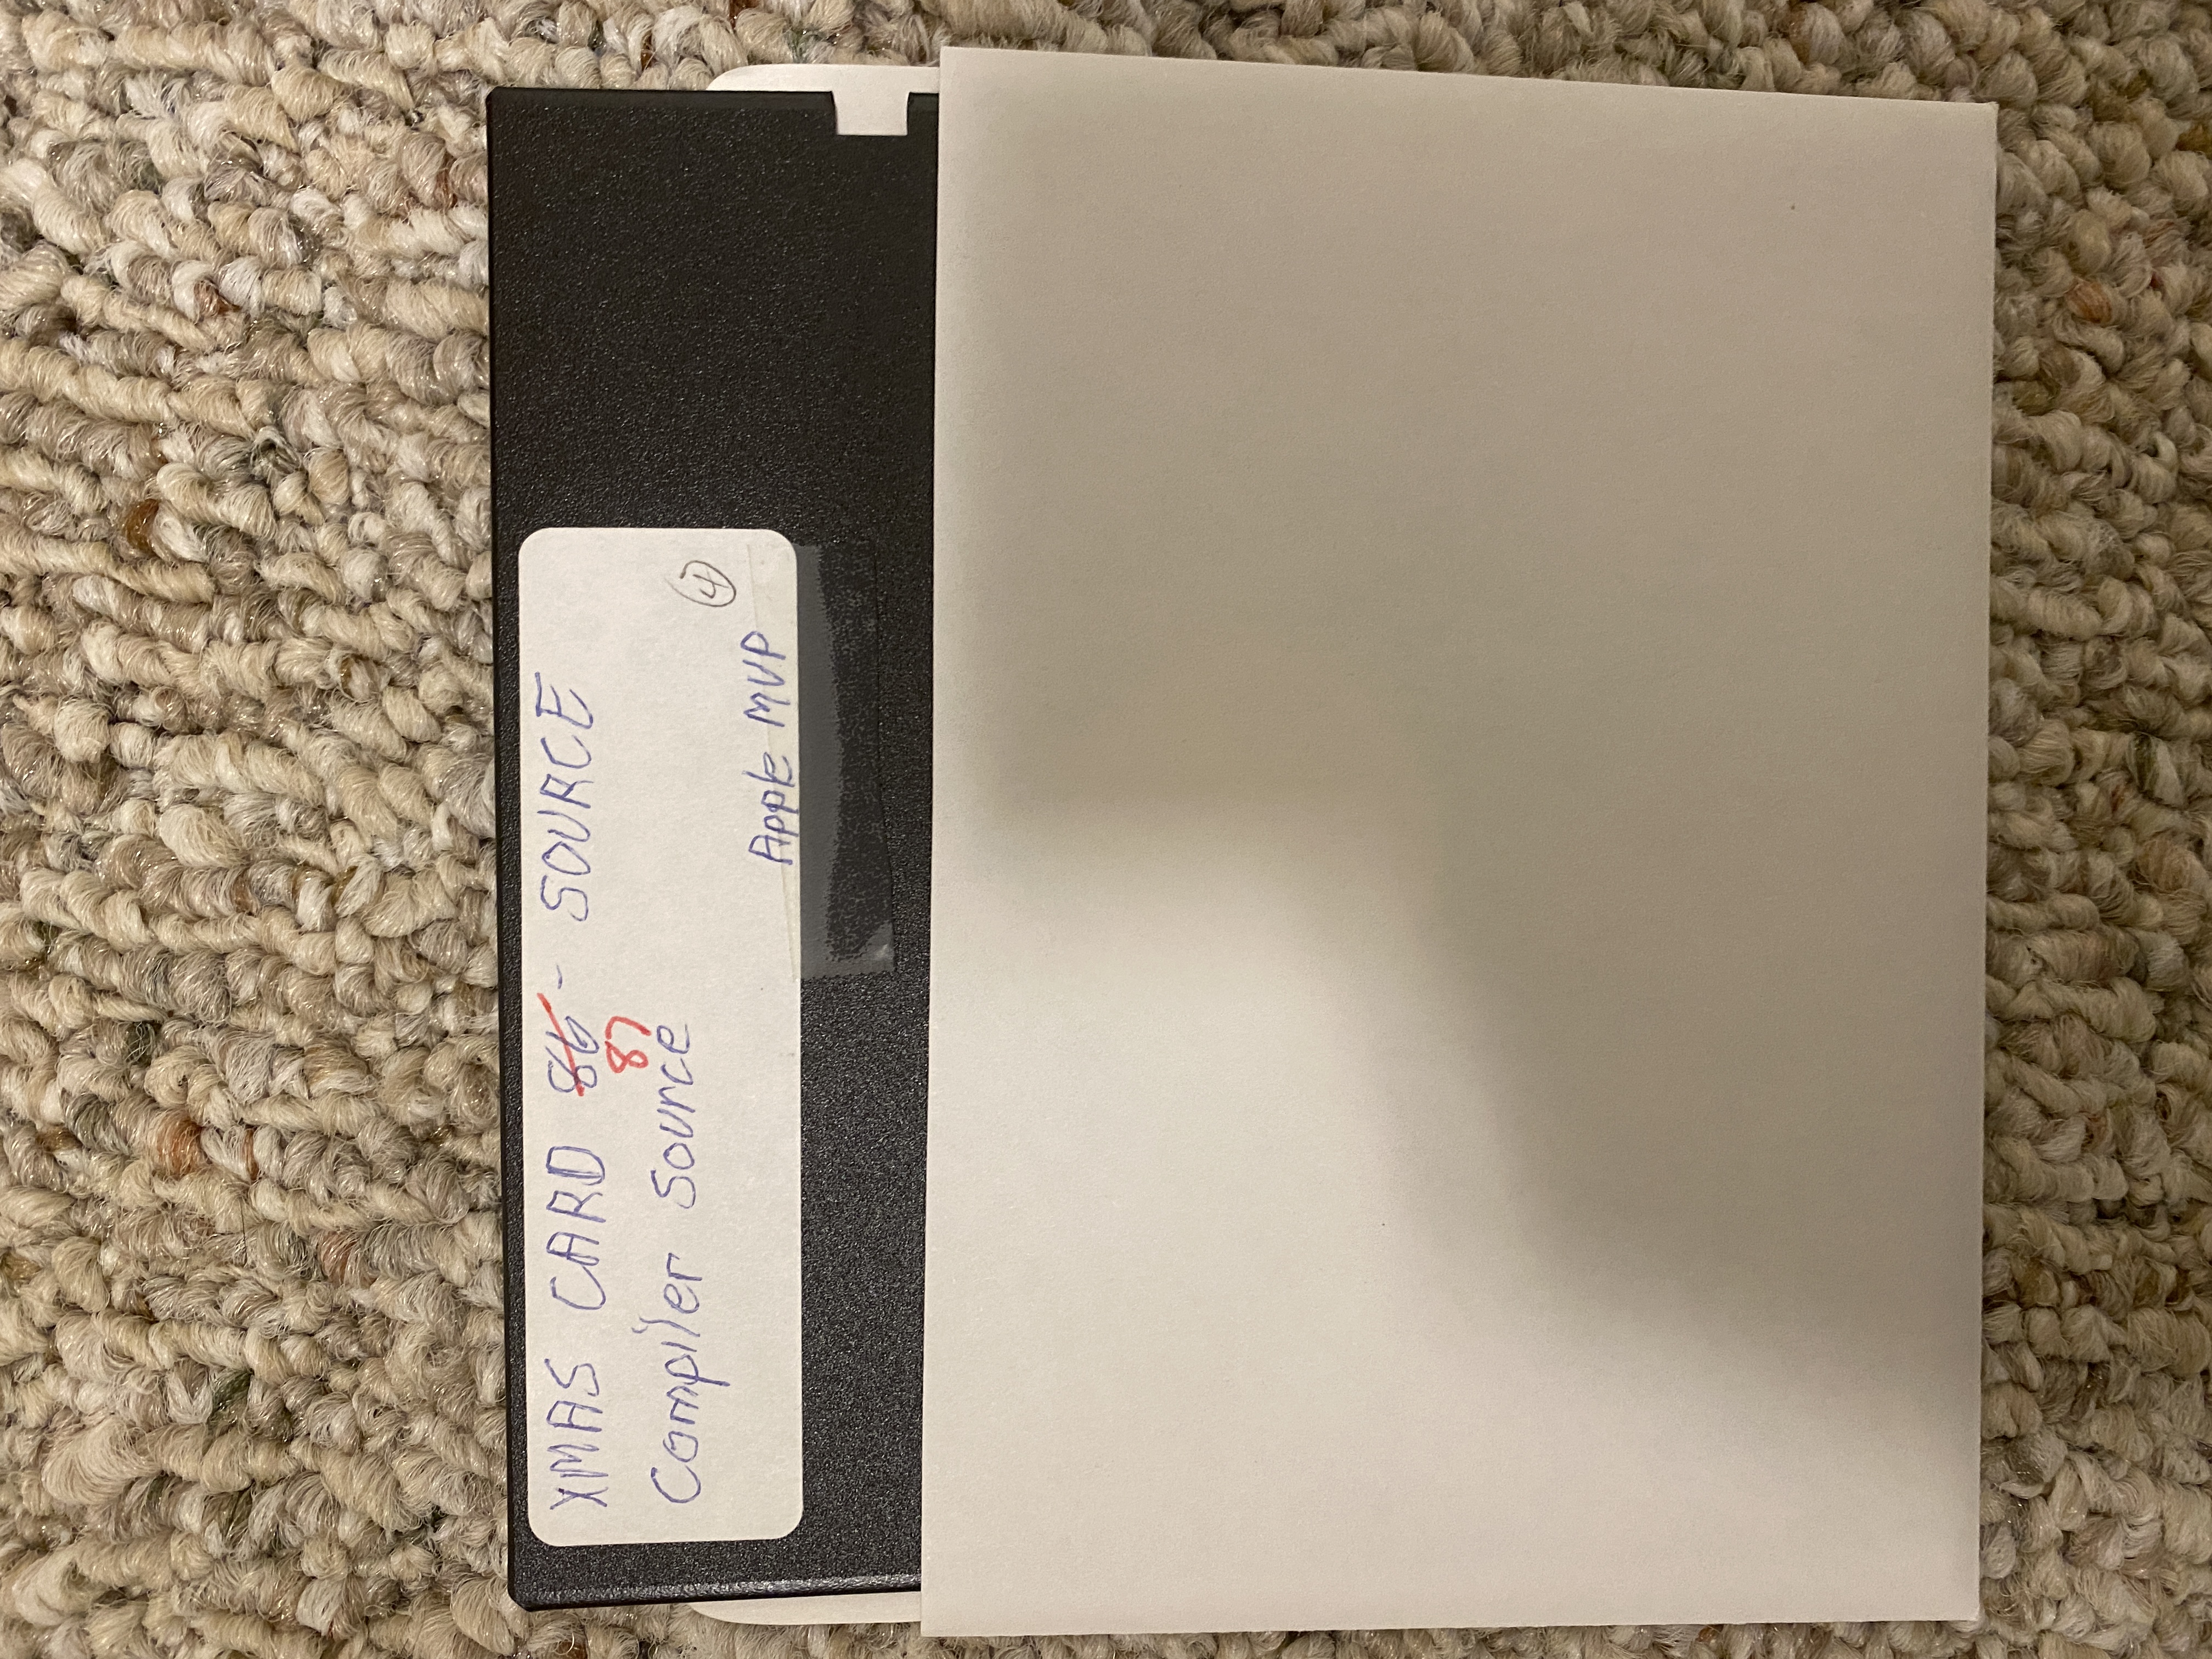 XMAS CARD 86 - SOURCE
87
Compiler Source
4
Apple MVP